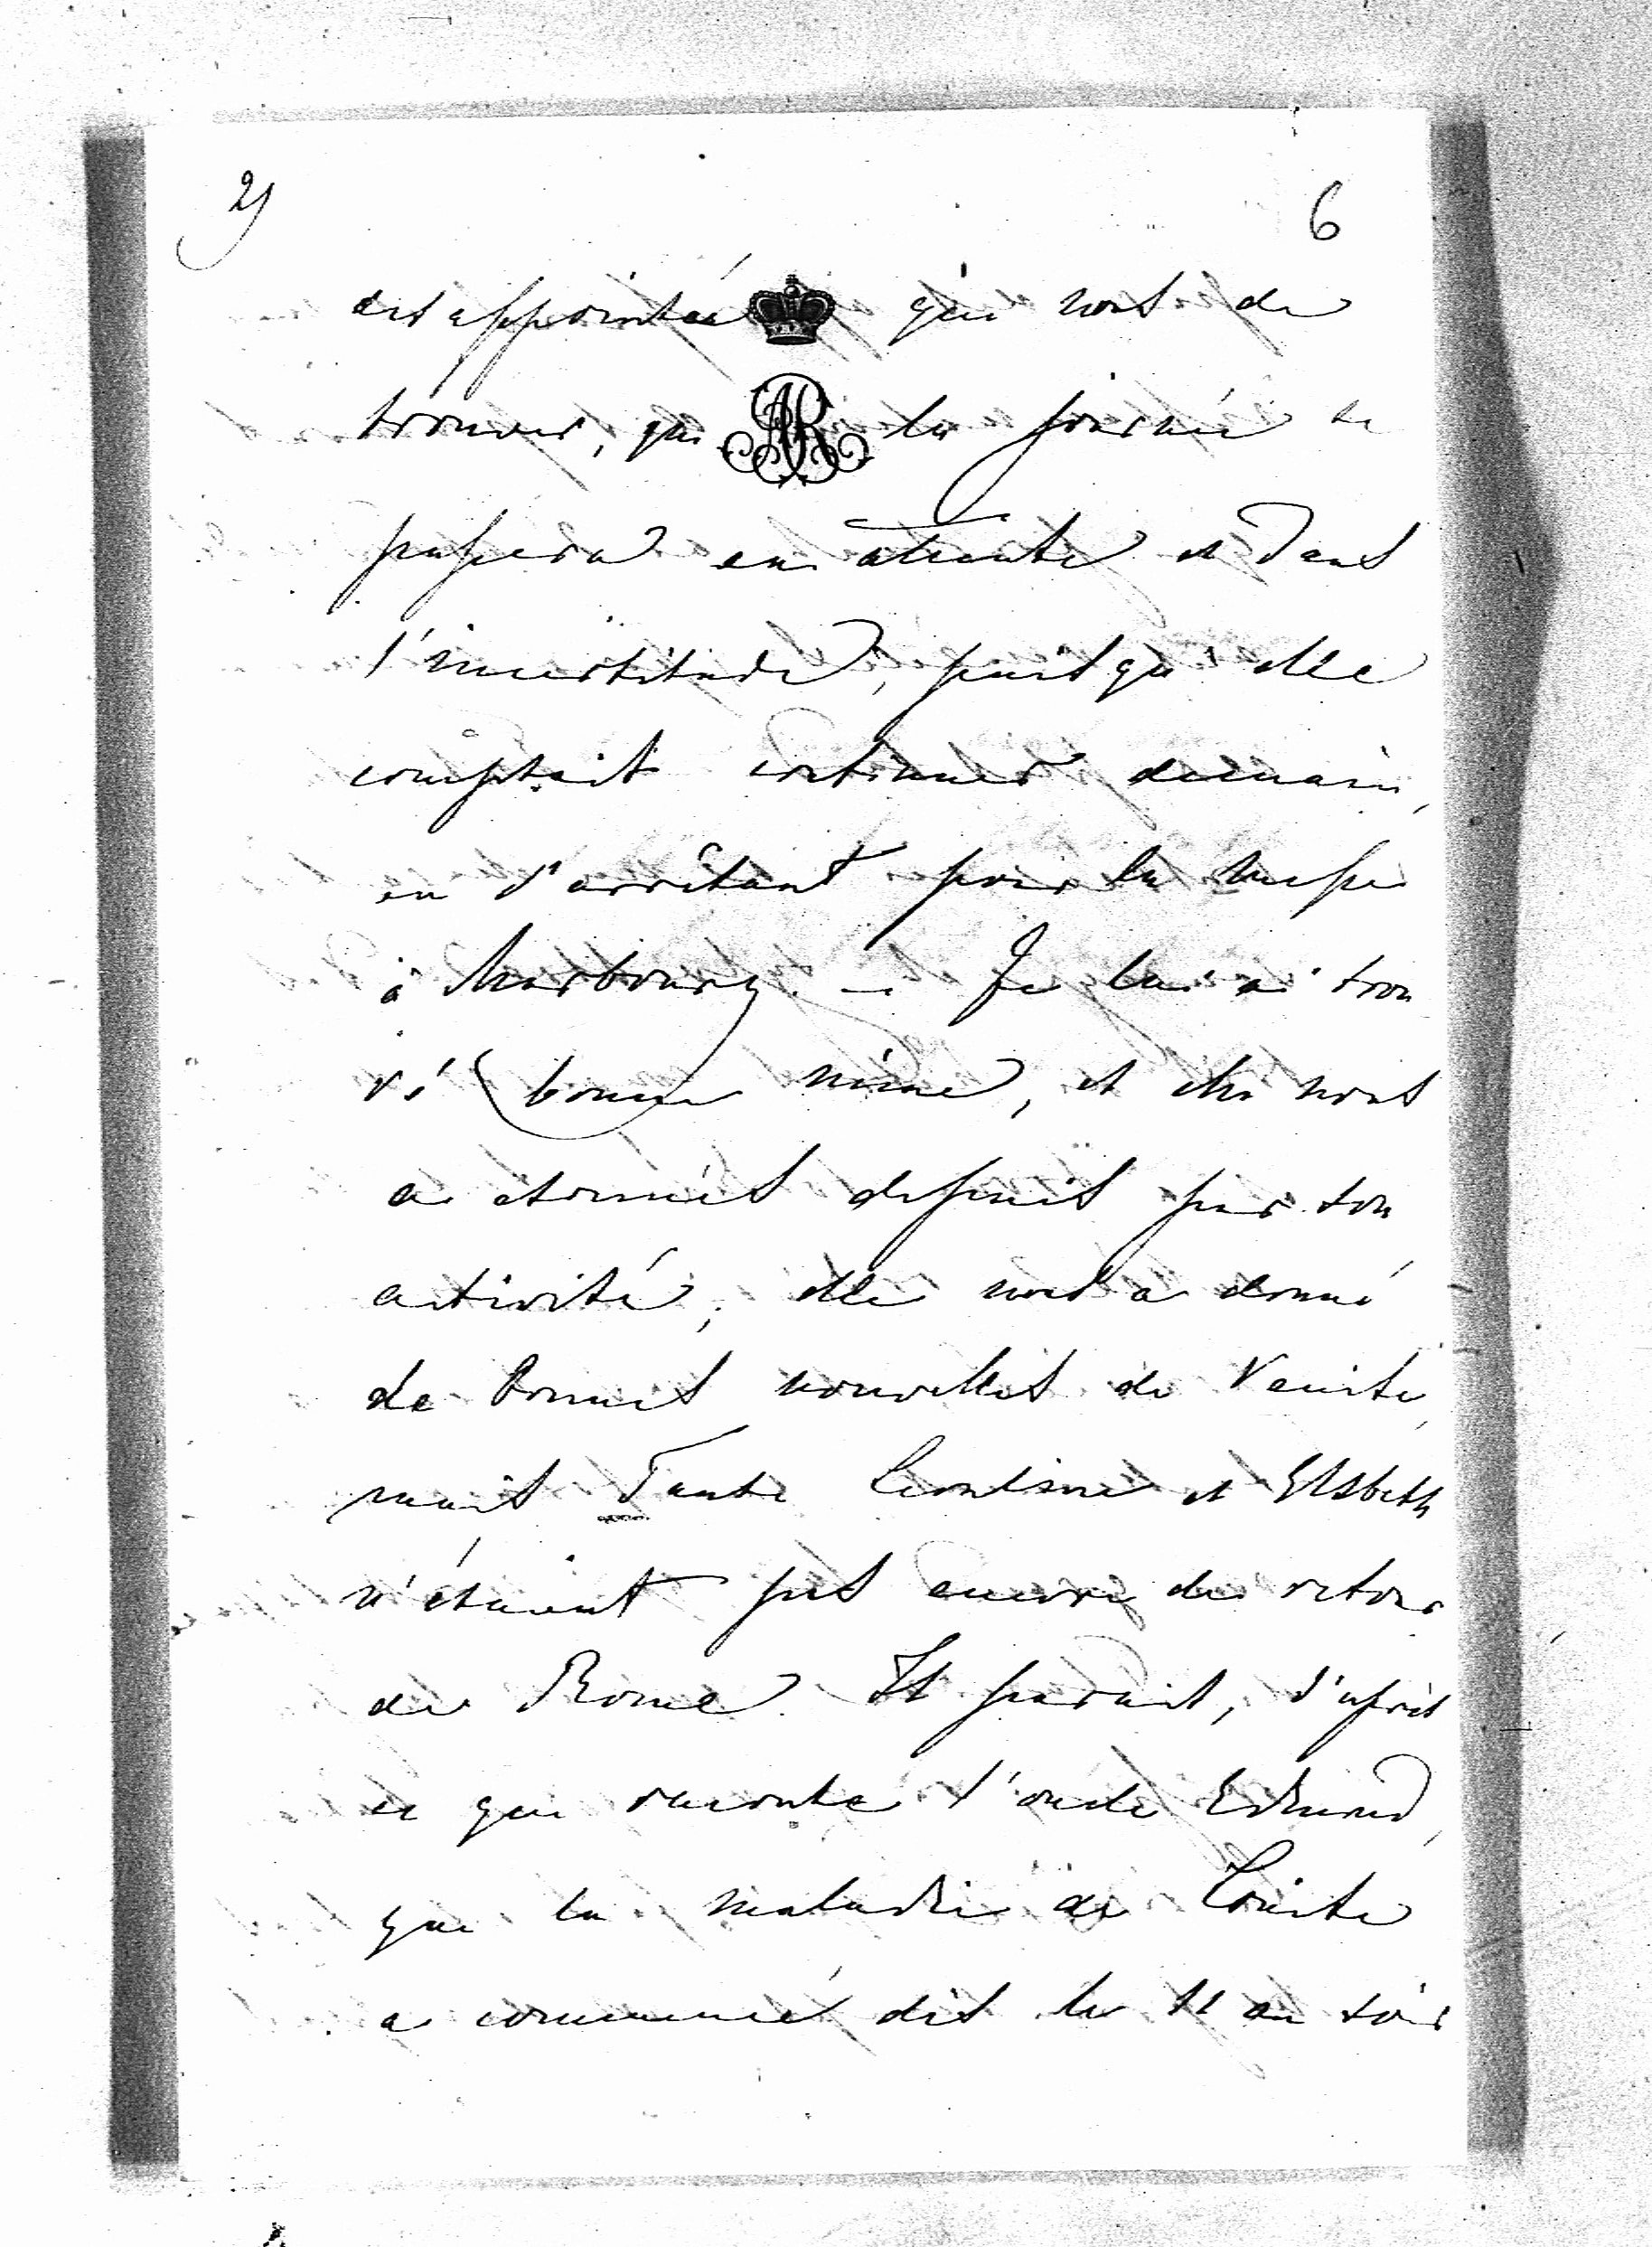 2)
6
desappointée que nous de
AR
trouver, que la journée se
passera en attente et dans
l'incertitude, puisqu'elle
comptait continuer demain,
en s'arrêtant pour la messe
à Marbourg. – Je lui ai trou
vé bonne mine, et elle nous
a étonnés depuis par son
activité; elle nous a donné
de bonnes nouvelles de Venise,
mais Tante Léontine et Elsbeth
n'étaient pas encore de retour
de Rome. Il parait, d'après
ce que raconte l'oncle Edmund,
que la maladie de Louise
a commencé dès le 11 au soir